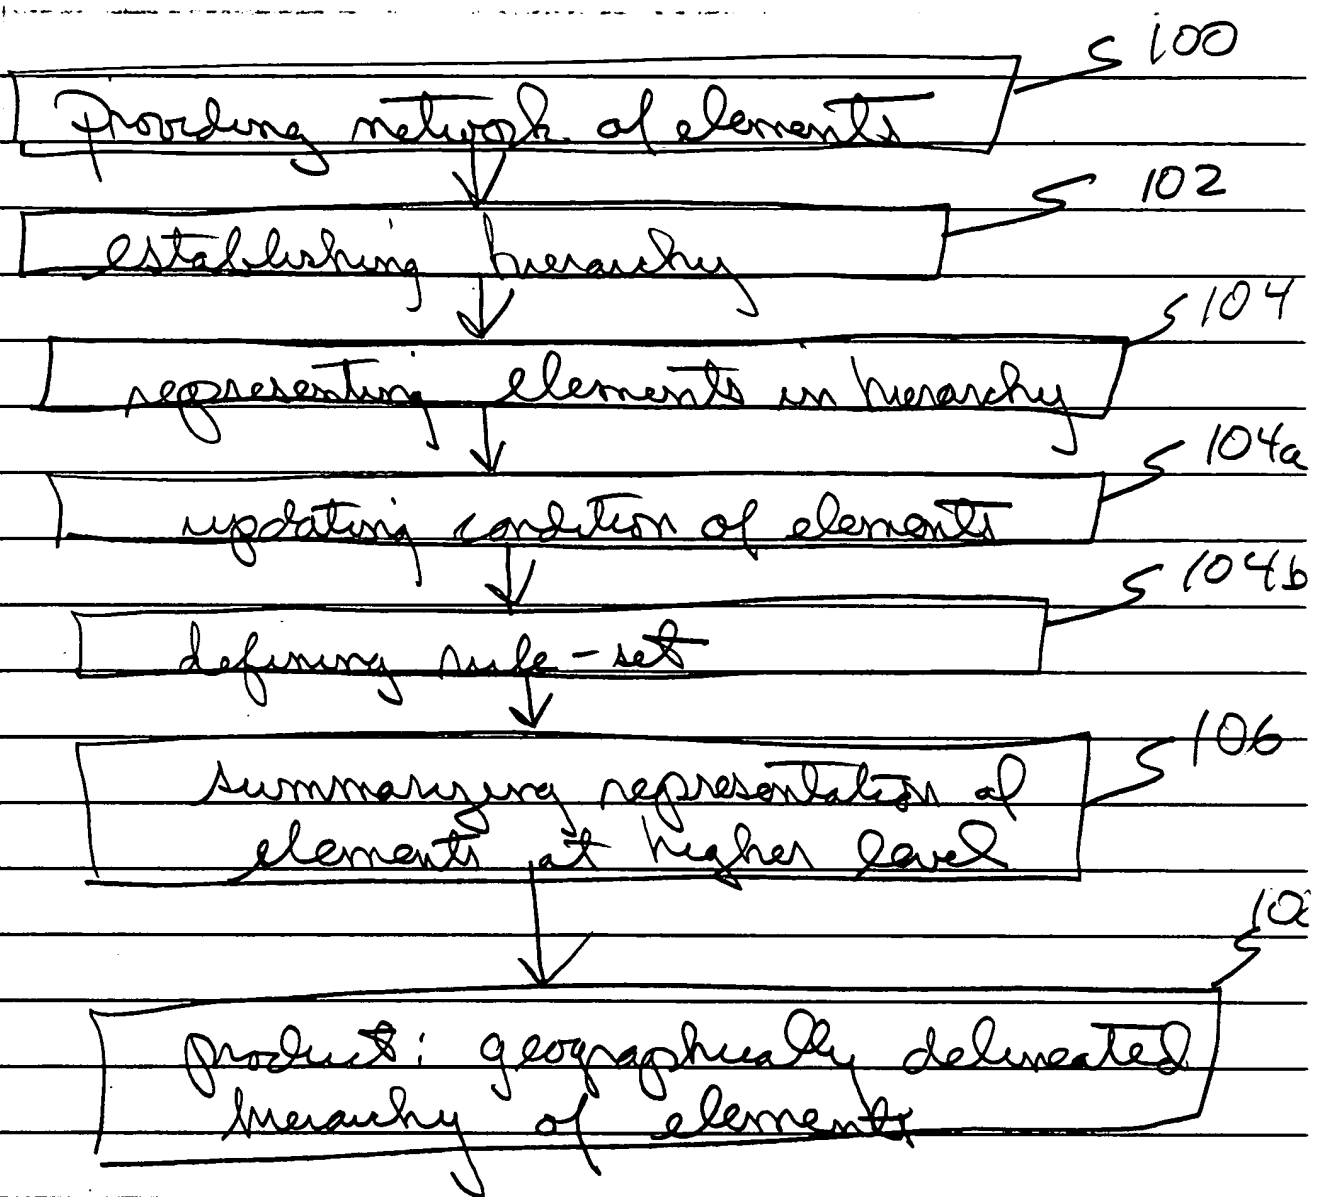 100
Providing network of elements
102
establishing hierarchy
104
representing elements in hierarchy
104a
updating condition of elements
104b
defining rule-set
106
summarizing representation of
elements at higher level
product: geographically delineated
hierarchy of elements